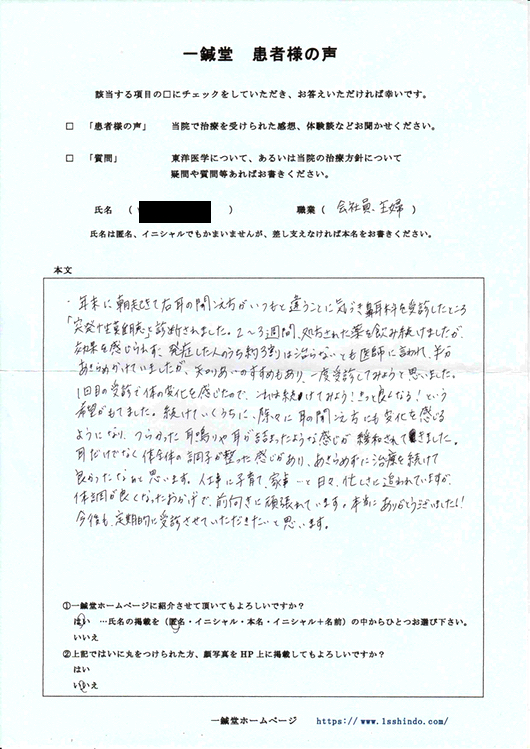 一鍼堂 患者様の声
該当する項目の□にチェックをしていただき、お答えいただければ幸いです。
□ 「患者様の声」 当院で治療を受けられた感想、体験談などお聞かせください。
□ 「質問」 東洋医学について、あるいは当院の治療方針について
疑問や質問等あればお書きください。
氏名 ( ) 職業( 会社員、主婦 )
氏名は匿名、イニシャルでもかまいませんが、差し支えなければ本名をお書きください。
本文
・年末に朝起きて右耳の聞こえ方がいつもと違うことに気づき鼻耳科を受診したところ
「突発性難聴」と診断されました。2〜3週間、処方された薬を飲み続けましたが、
効果を感じられず、発症した人のうち約3割は治らないとも医師に言われ、半分
あきらめかけていましたが、知りあいのすすめもあり、一度受診してみようと思いました。
1回目の受診で体の変化を感じたので、これは続けてみよう!きっと良くなる!という
希望がもてました。続けていくうちに、除々に耳の聞こえ方にも変化を感じる
ようになり、つらかった耳鳴りや耳が詰まったような感じが緩和されてきました。
耳だけでなく体全体の調子が整った感じがあり、あきらめずに治療を続けて
良かったなぁと思います。仕事に子育て、家事…と日々、忙しさに追われていますが、
体調が良くなったおかげで、前向きに頑張れています。本当にありがとうございました!
今後も、定期的に受診させていただきたいと思います。
①一鍼堂ホームページに紹介させて頂いてもよろしいですか?
はい …氏名の掲載を(匿名・イニシャル・本名・イニシャル+名前)の中からひとつお選び下さい。
いいえ
②上記ではいに丸をつけられた方、顔写真をHP上に掲載してもよろしいですか?
はい
いいえ
一鍼堂ホームページ https://www.1sshindo.com/